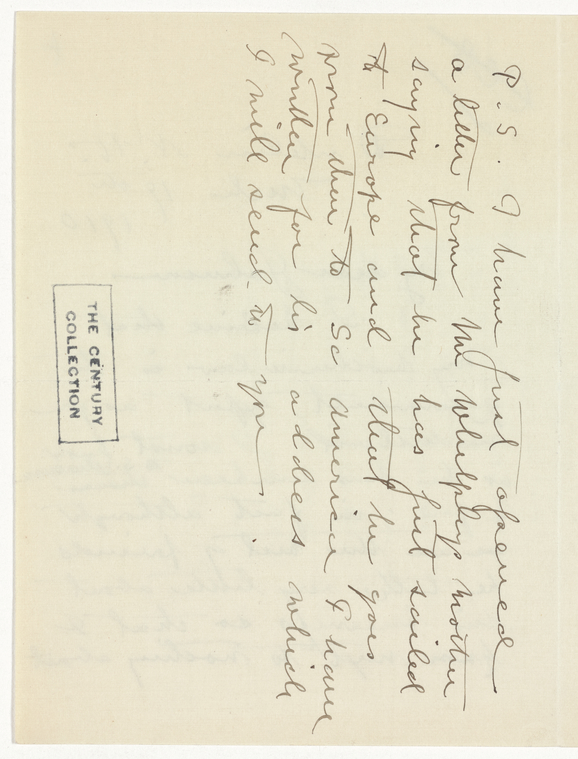 P.S. I have just opened
a letter from Mr Whelpleys mother
saying that he has just sailed
to Europe and that he goes
from then to So America I have
written for his address which
I will send to you.
THE CENTURY
COLLECTION